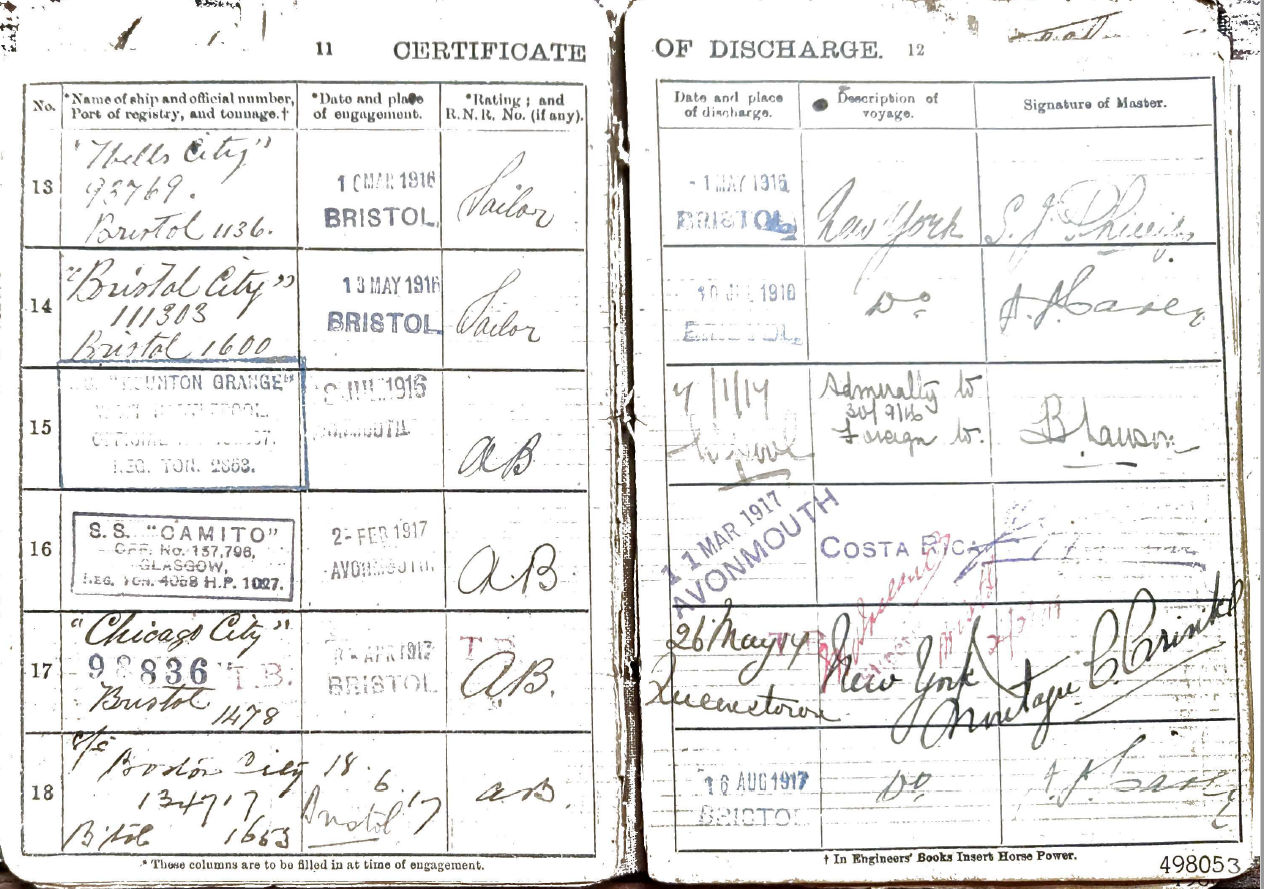 11 CERTIFICATE
No.
*Name of ship and official number, Port of registry, and tonnage.†
*Date and place of engagement.
*Rating; and R.N.R. No. (if any).
13
"Wells City"
93769.
Bristol 1136.
MAR 1916
BRISTOL
Sailor
14
"Bristol City"
111303
Bristol 1600
13 MAY 1916
BRISTOL
Sailor
15
GRANGE"
REG. TON. 2868.
1916
AB
16
S.S. "CAMITO"
OFF. No. 137,796,
GLASGOW,
REG. TON. 4058 H.P. 1027.
2- FEB 1917
AVONMOUTH.
AB
17
"Chicago City"
98836 T.B.
Bristol
1478
APR 1917
BRISTOL
T.B.
AB.
18
s/s
Boston City
134717
B'tol 1653
18.
6.
Bristol '17
AB.
* These columns are to be filled in at time of engagement.
OF DISCHARGE. 12
Date and place of discharge.
Description of voyage.
Signature of Master.
- 1 MAY 1916
BRISTOL
New York
S. J. Phillips
1916
BRISTOL
Do
7/1/17
L'pool
Admiralty to
30/9/16
Foreign to.
11 MAR 1917
AVONMOUTH
COSTA RICA
26 May 17
Queenstown
New York
Montague C.
16 AUG 1917
BRISTOL
Do
† In Engineers' Books Insert Horse Power.
498053